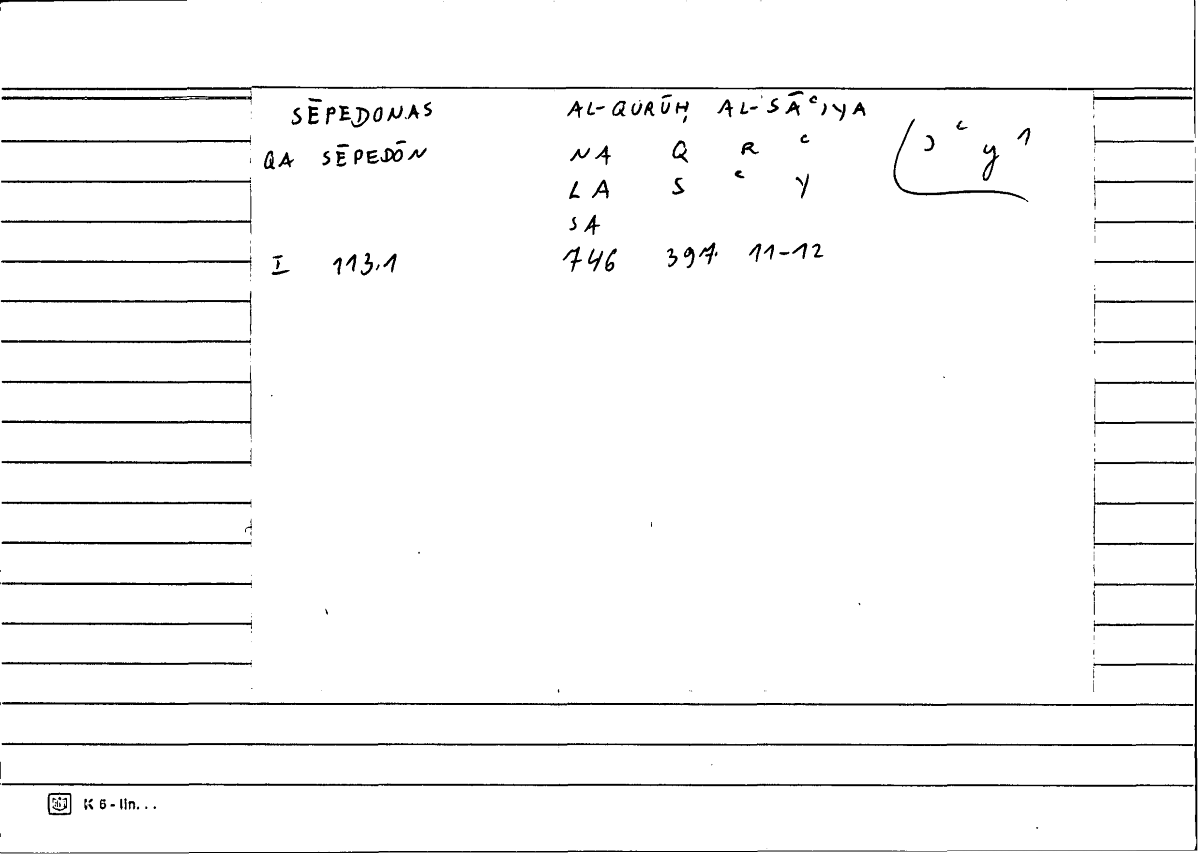 SĒPEDONAS AL-QURŪḤ AL-SĀʿIYA
QA SĒPEDŌN NA Q R ʿ
LA S ʿ Y
SA
I 113.1 746 397. 11-12
K 6 - lin...